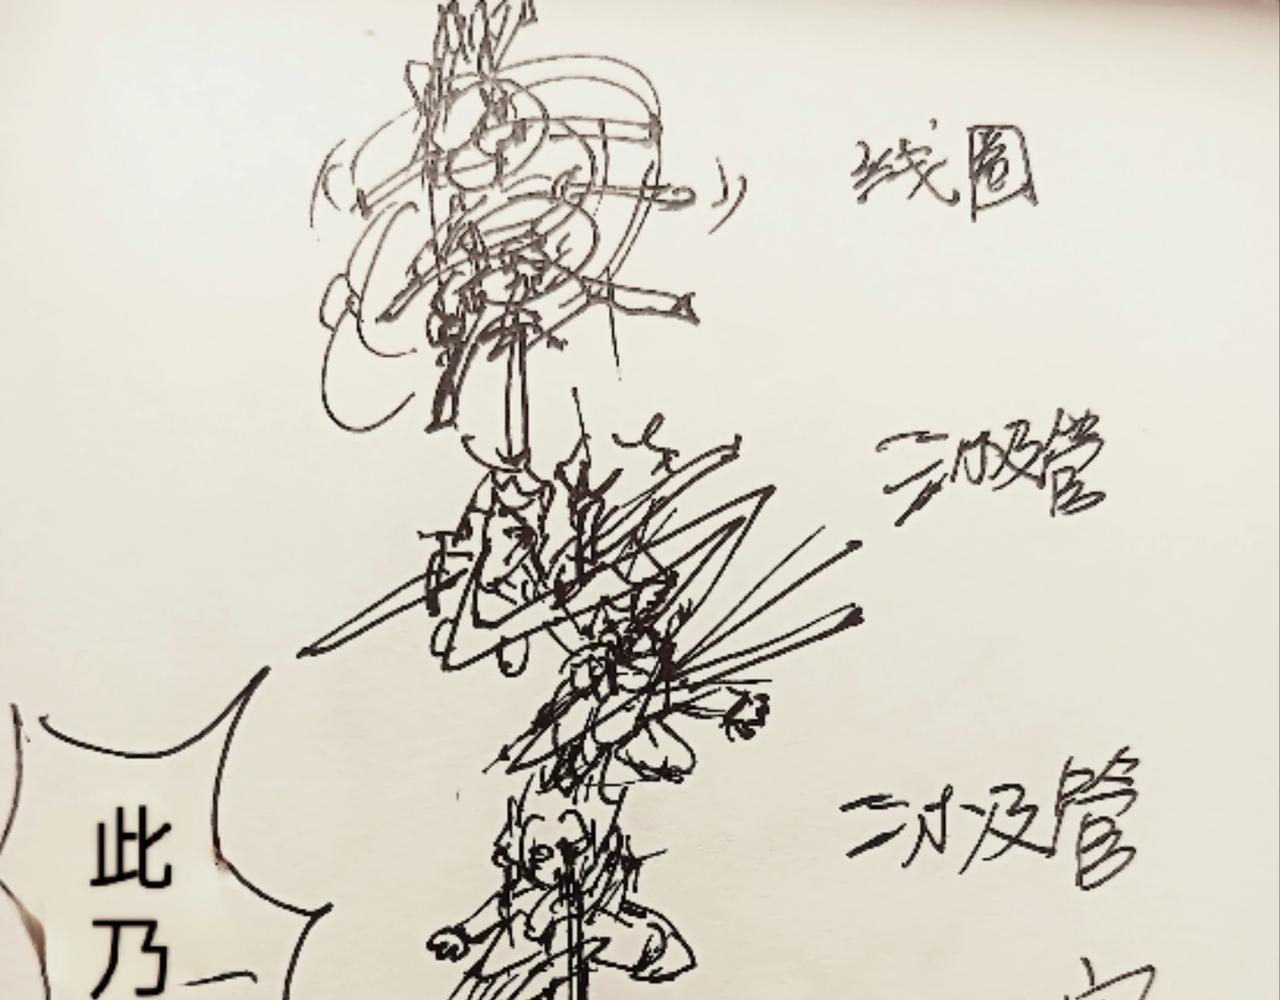 线圈
二极管
二极管
此乃